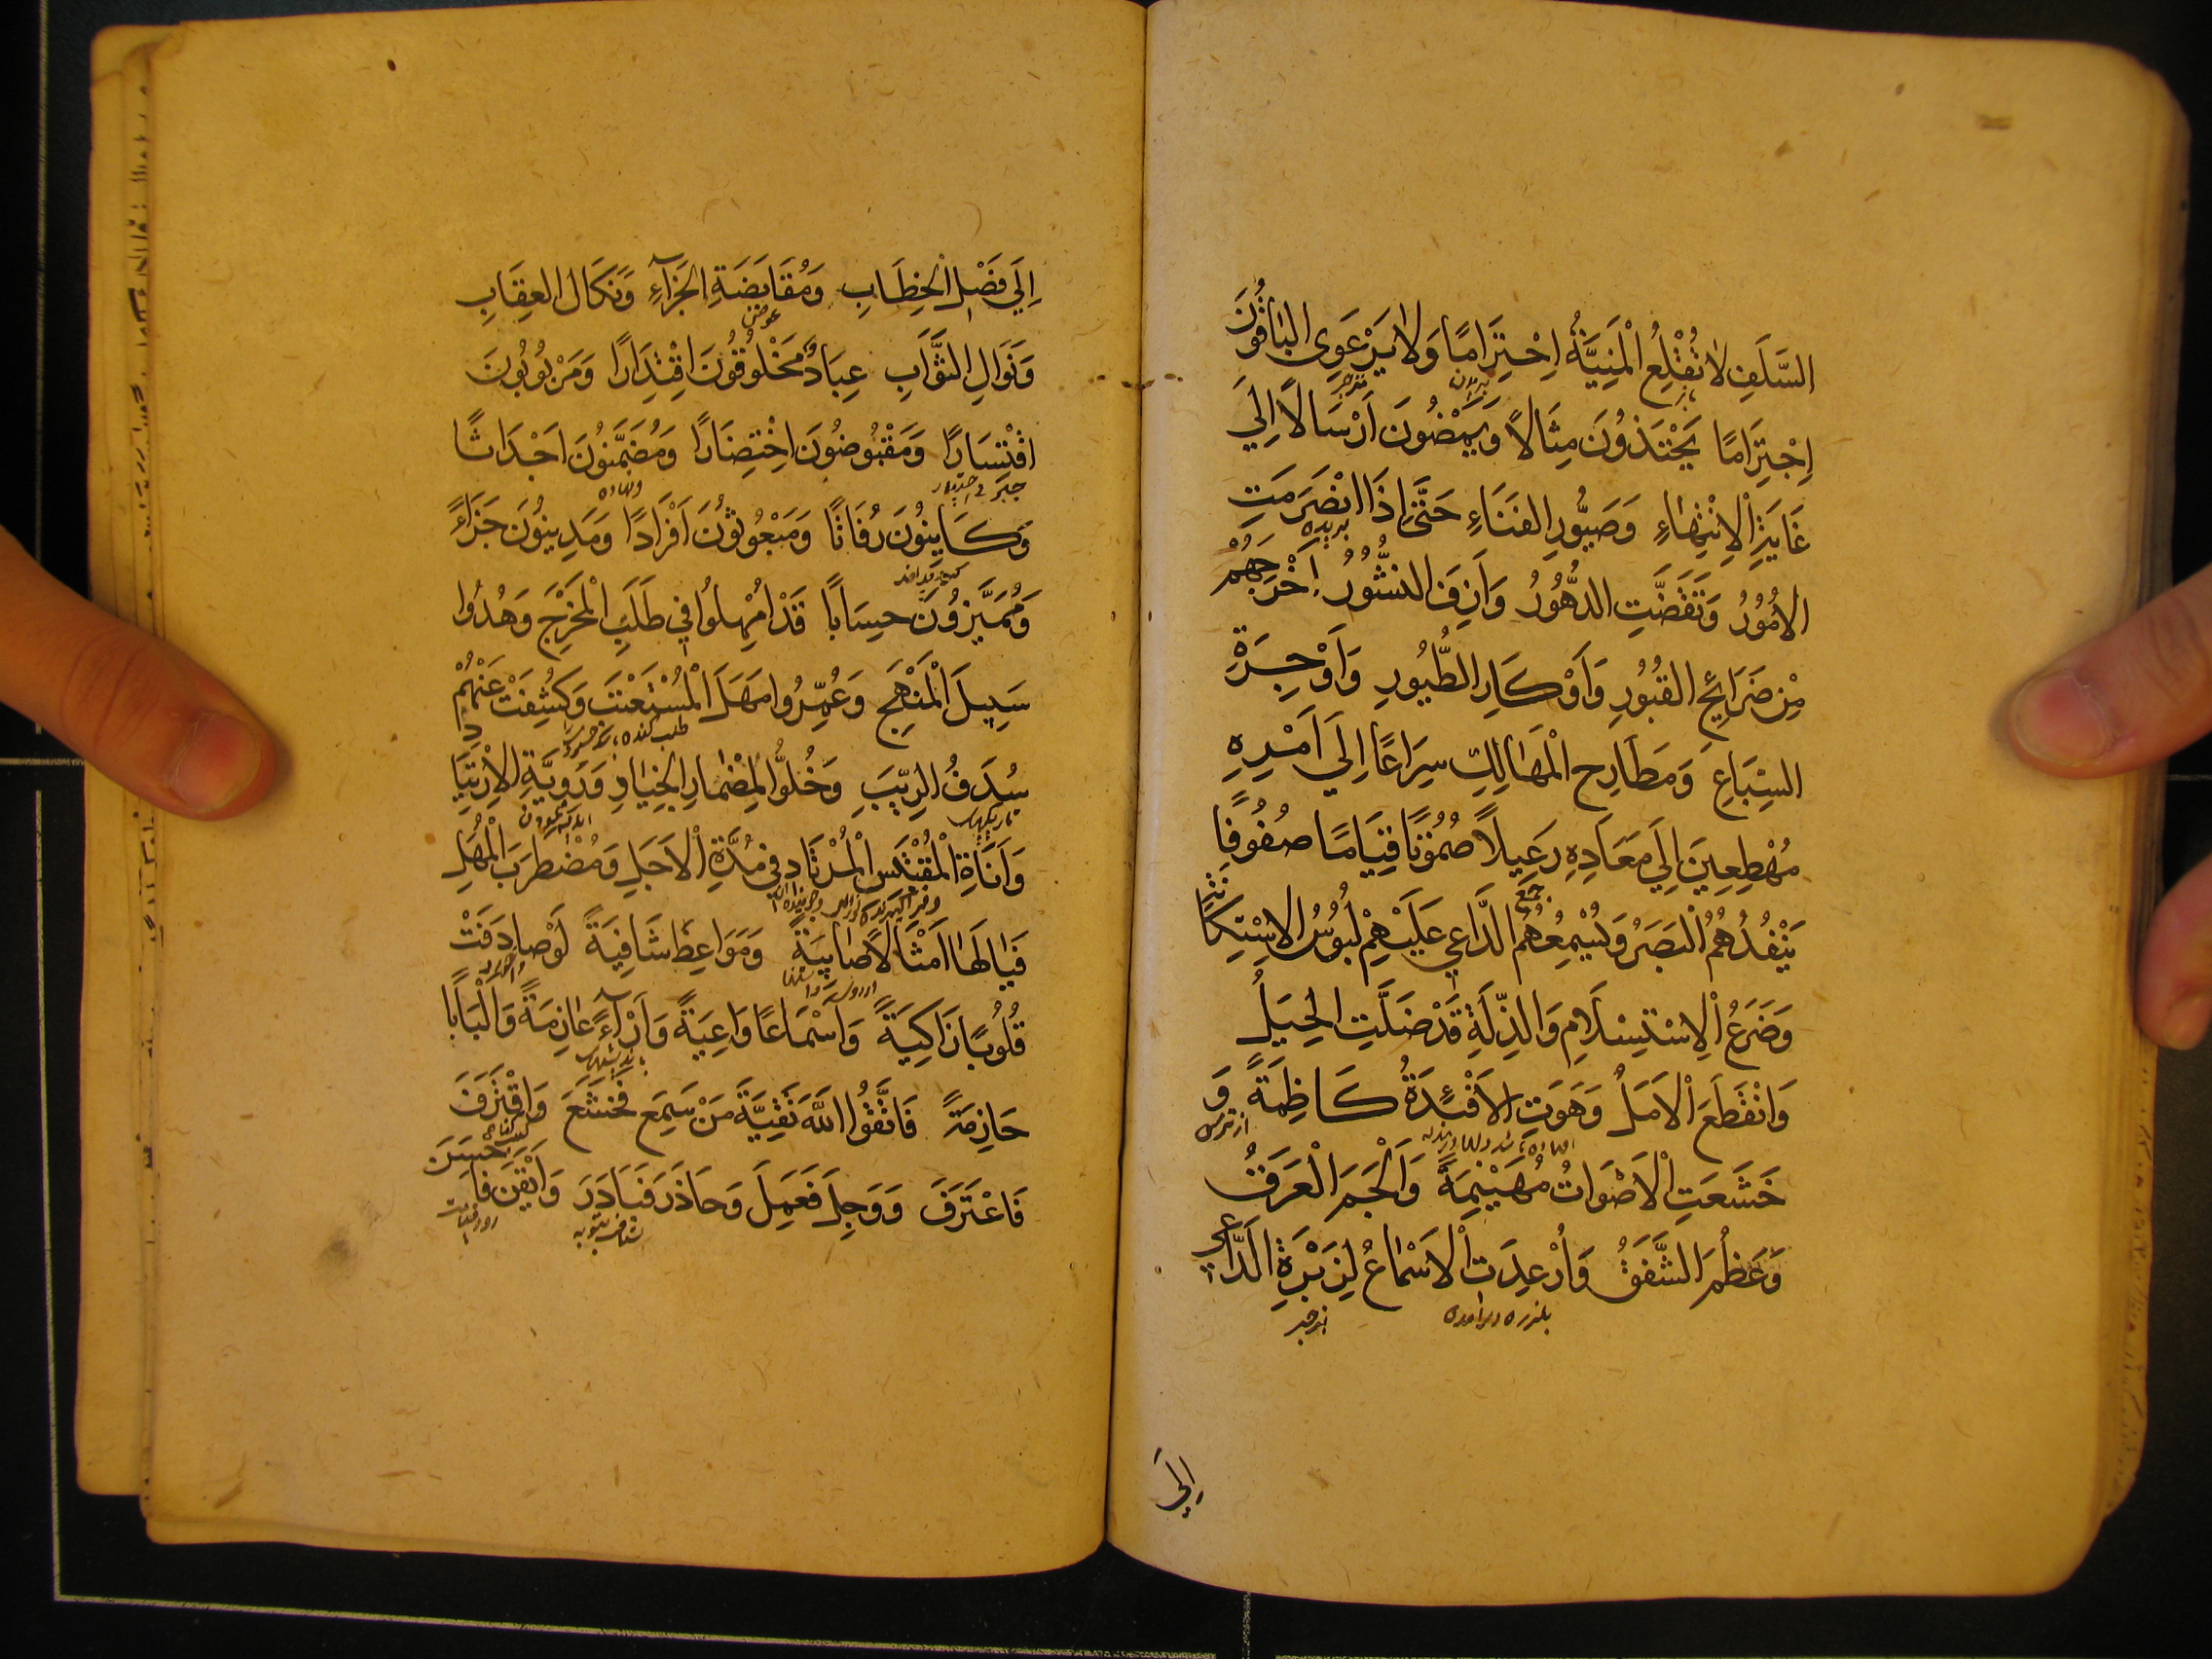 السَّلَفِ لَا تُقْلِعُ الْمَنِيَّةُ اِخْتِرَامًا وَلَا يَرْعَوِي الْبَاقُونَ
اِجْتِرَامًا يَحْتَذُونَ مِثَالًا وَيَمْضُونَ اَرْسَالًا اِلَي
غَايَةِ الْاِنْتِهَاءِ وَصَيُّورِ الفَنَاءِ حَتَّي اِذَا انْصَرَمَتِ
بريده
الاُمُوُرُ وَتَقَضَّتِ الدُّهُوُرُ وَاَزِفَ النُّشُّوُرُ اَخْرَجَهُمْ
مِنْ ضَرَايِحِ القُبُوُرِ وَاَوْكَارِ الطُّيُورِ وَاَوْجِرَةِ
السِّبَاعِ وَمَطَارِحِ الْمَهَالِكِ سِرَاعًا اِلَي اَمْرِهِ
مُهْطِعِينَ اِلَي مَعَادِهِ رَعِيلًا صُمُوتًا قِيَامًا صُفُوفًا
جمع
يَنْفُدُهُمُ الْبَصَرُ وَيُسْمِعُهُمُ الدَّاعِي عَلَيْهِمْ لَبُوُسُ الاِسْتِكَانَةِ
وَضَرَعُ الْاِسْتِسْلَامِ وَالذِّلَةِ قَدْ ضَلَّتِ الْحِيَلُ
وَانْقَطَعَ الْاَمَلُ وَهَوَتِ الاَفْئِدَةُ كَاظِمَةً وَ
خَشَعَتِ الْاَصْوَاتُ مُهَيْنِمَةً وَالْجَمَ الْعَرَقُ
وَعَظُمَ الشَّفَقُ وَاُرْعِدَتِ الْاَسْمَاعُ لِزَبْرَةِ الدَّاعِي
اِلَي
اِلَي فَصْلِ الْخِطَابِ وَمُقَايَضَةِ الْجَزَآءِ وَنَكَالِ العِقَابِ
عوض
وَنَوَالِ الثَّوَابِ عِبَادٌ مَخْلُوقُونَ اقْتِدَارًا وَمَرْبُوُبُونَ
اقْتِسَارًا وَمَقْبُوضُونَ اخْتِضَارًا وَمُضَمَّنُونَ اَجْدَاثًا
وَكَايِنُونَ رُفَاتًا وَمَبْعُوثُونَ اَفْرَادًا وَمَدِينُونَ جَزَاءً
وَمُمَيَّزُونَ حِسَابًا قَدْ اُمْهِلُوا فِي طَلَبِ الْمَخْرَجِ وَهُدُوا
سَبِيلَ الْمَنْهَجِ وَعُمِّرُوا مَهَلَ الْمُسْتَعْتِبَ وَكُشِفَتْ عَنْهُمْ
سُدَفُ الرِّيَبِ وَخُلُّوا لِمِضْمَارِ الْجِيَادِ وَرَوِيَّةِ الْاِرْتِيَادِ
وَاَنَاةِ الْمُقْتَبِسِ الْمُرْتَادِ فِي مُدَّةِ الْاَجَلِ وَمُضْطَرَبِ الْمَهَلِ
فَيَالَهَا اَمْثَالًا صَايِبَةً وَمَوَاعِظَ شَافِيَةً لَوْ صَادَفَتْ
قُلُوبًا زَاكِيَةً وَاَسْمَاعًا وَاعِيَةً وَاَرْآءً عَازِمَةً وَاَلْبَابًا
حَازِمَةً فَاتَّقُوا اللَّهَ تَقِيَّةَ مَنْ سَمِعَ فَخَشَعَ وَاقْتَرَفَ
فَاعْتَرَفَ وَوَجِلَ فَعَمِلَ وَحَاذَرَ فَبَادَرَ وَاَيْقَنَ فَاَحْسَنَ